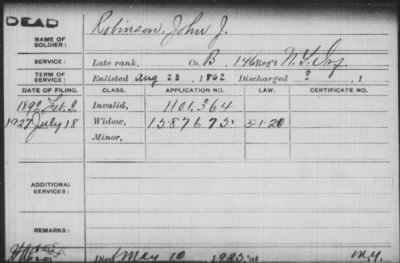 DEAD
NAME OF SOLDIER: Robinson, John J.
SERVICE: Late rank, Co. B, 146 Reg't N.Y. Inf.
TERM OF SERVICE: Enlisted Aug 23, 1862 Discharged ?, 1
DATE OF FILING. CLASS. APPLICATION NO. LAW. CERTIFICATE NO.
1892 Feb. 2 Invalid, 1101.364
1927 July 18 Widow, 1587675 5-1-20
Minor,
ADDITIONAL SERVICES:
REMARKS:
Died May 10, 1923, at N.Y.